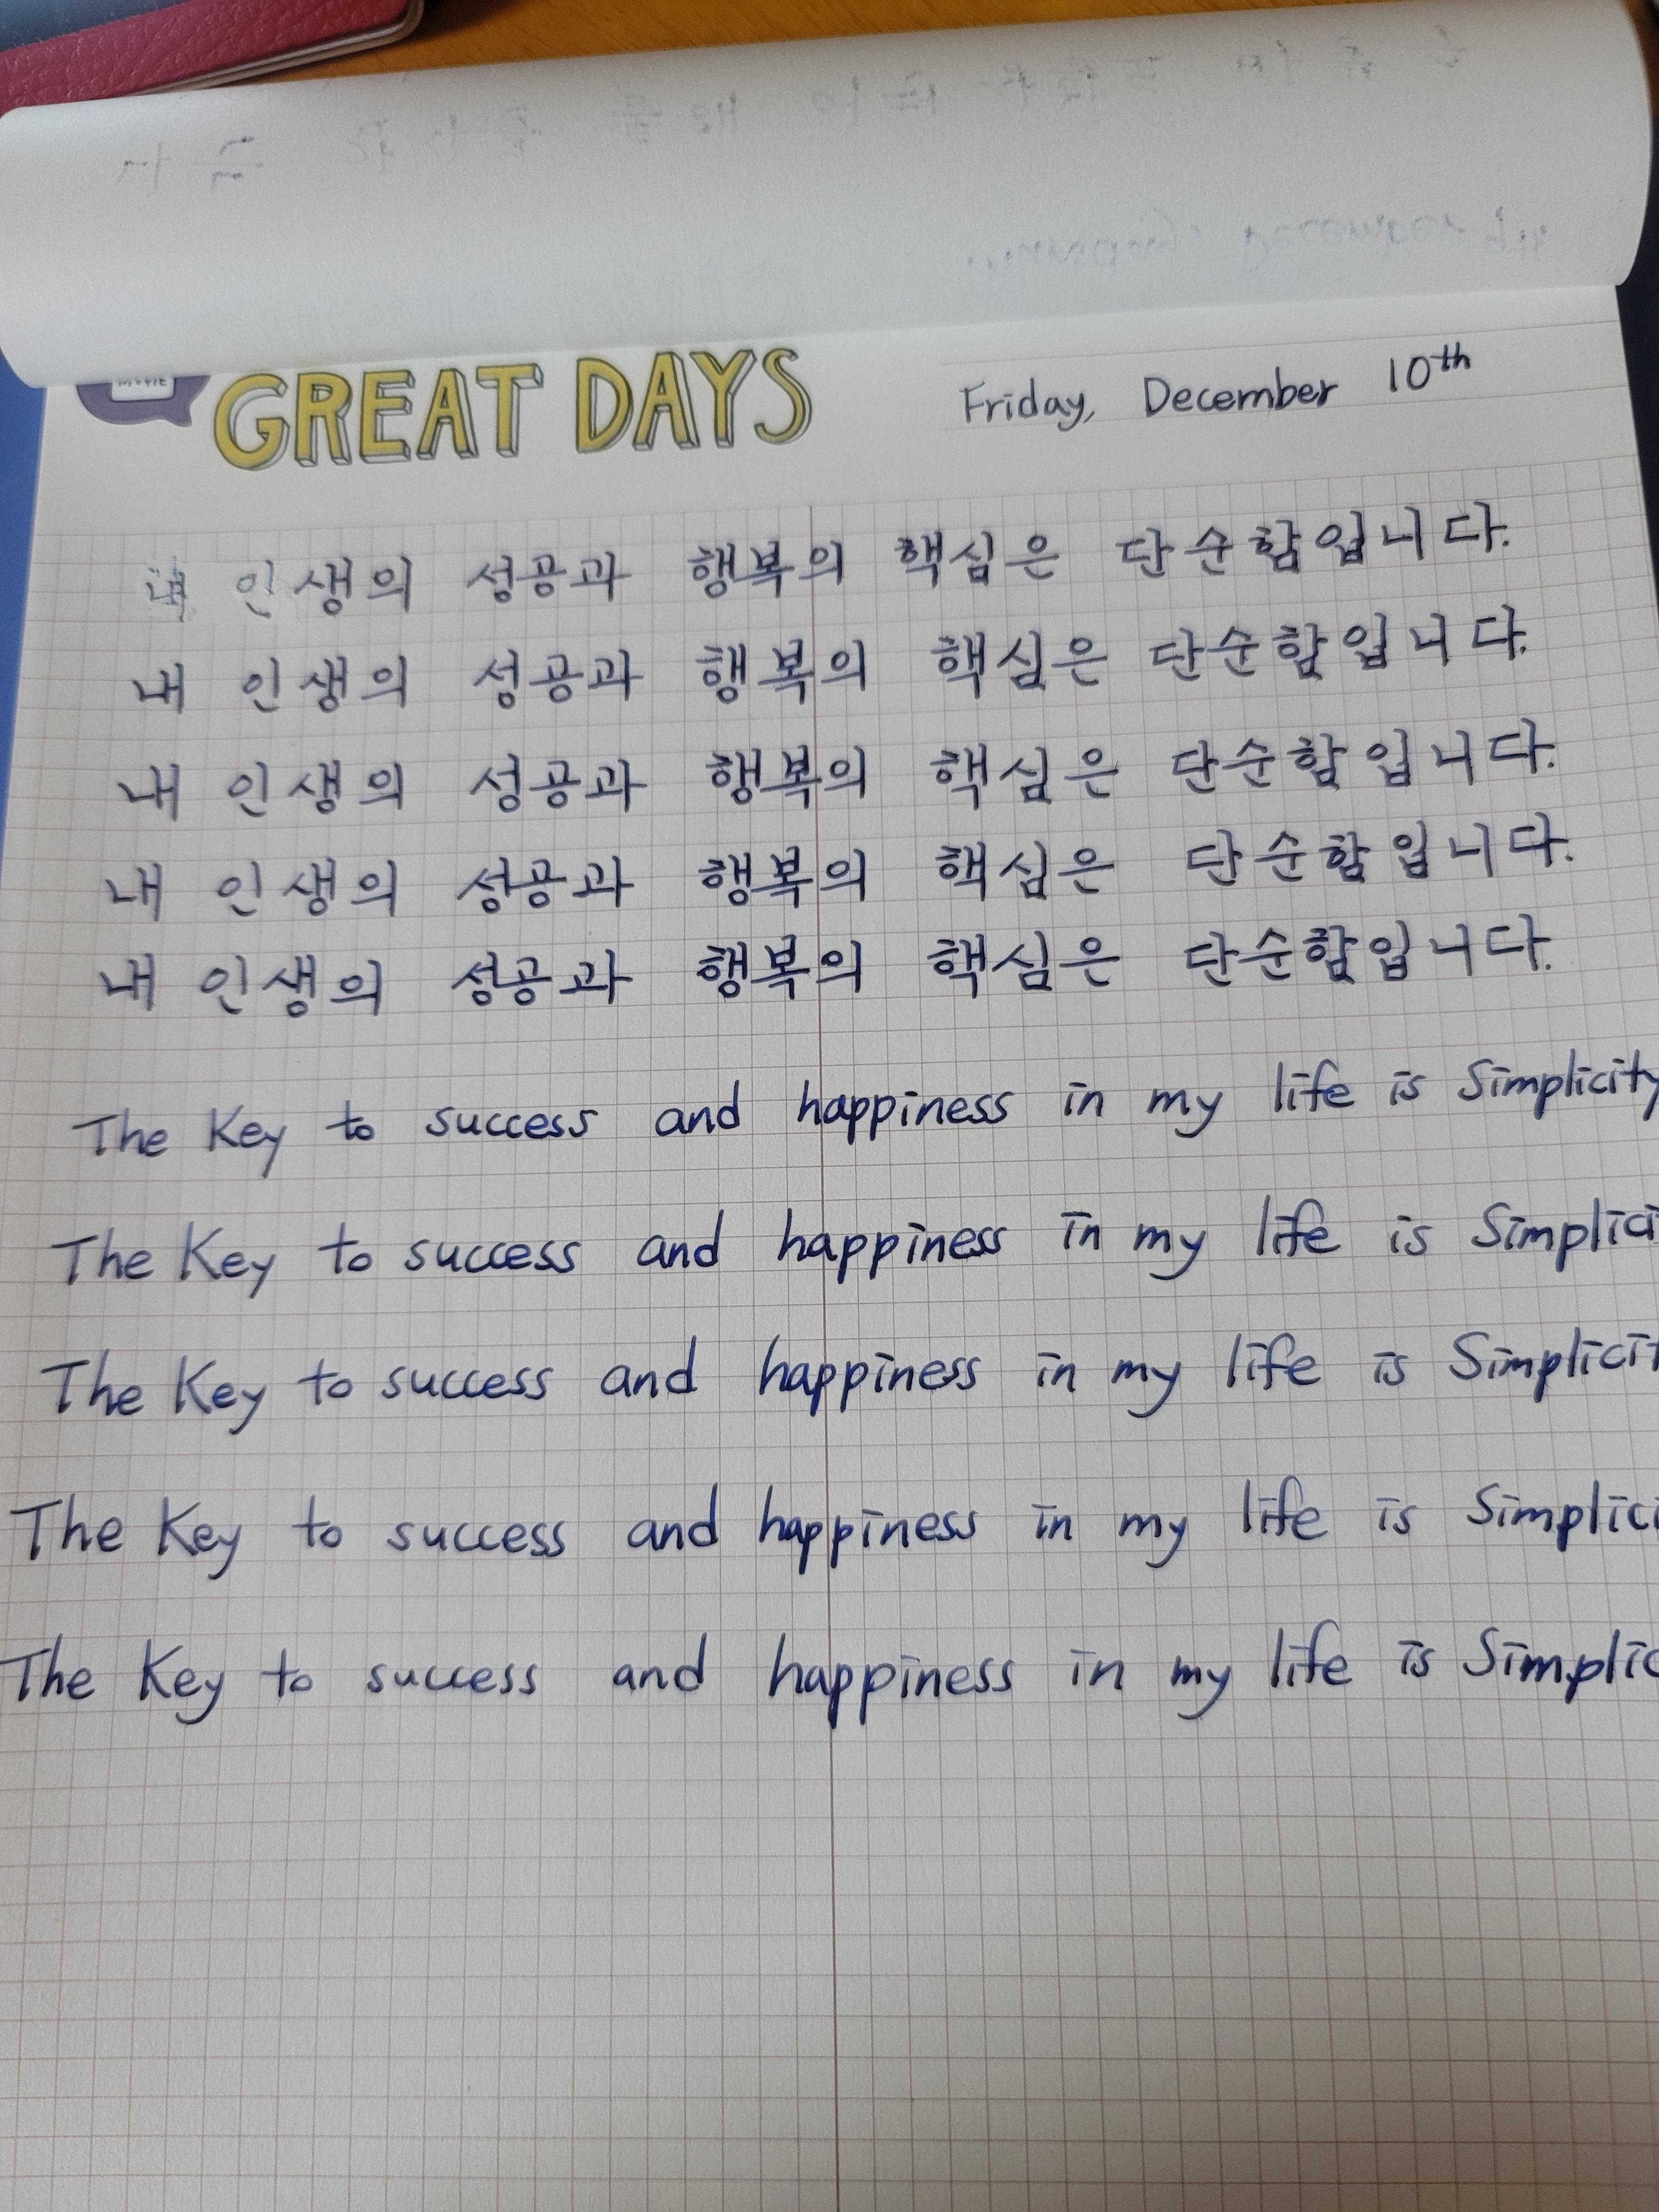 MOVIE
GREAT DAYS
Friday, December 10th
내 인생의 성공과 행복의 핵심은 단순함입니다.
내 인생의 성공과 행복의 핵심은 단순함입니다.
내 인생의 성공과 행복의 핵심은 단순함입니다.
내 인생의 성공과 행복의 핵심은 단순함입니다.
내 인생의 성공과 행복의 핵심은 단순함입니다.
The Key to success and happiness in my life is Simplicity
The Key to success and happiness in my life is Simplici
The Key to success and happiness in my life is Simplicit
The Key to success and happiness in my life is Simplici
The Key to success and happiness in my life is Simplic